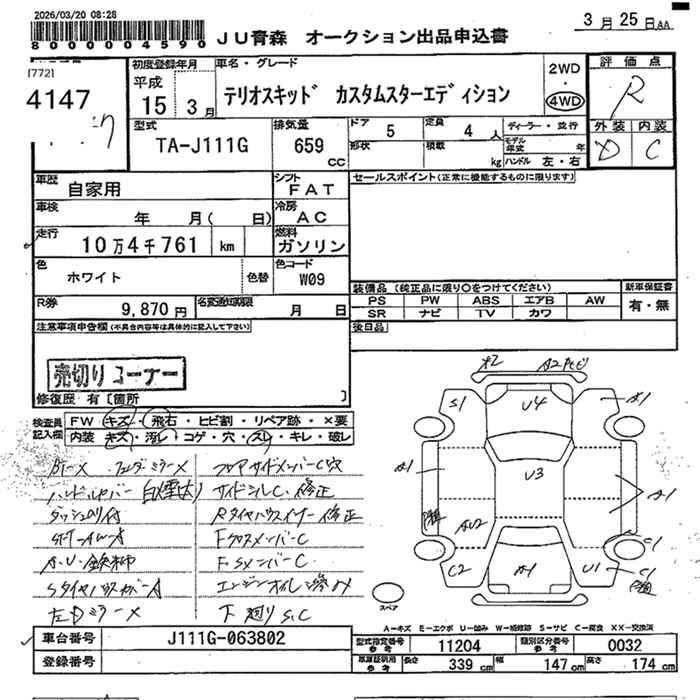 2026/03/20 08:28
800000004590
JU青森 オークション出品申込書
3月25日
[772]
4147
初度登録年月
平成
15 3月
車名・グレード
テリオスキッド カスタムスターエディション
2WD
・
4WD
評価点
R
型式
TA-J111G
排気量
659
CC
ドア 5
定員 4人
ディーラー・並行
形状
積載 kg
モデル年式 年
ハンドル 左・右
外装 内装
D C
車歴
自家用
シフト
FAT
セールスポイント(正常に機能するものに限ります)
車検
年 月( 日)
冷房
AC
走行
10万4千761 km
燃料
ガソリン
色
ホワイト
色替
色コード
W09
装備品(純正品に限り〇をつけてください)
PS PW ABS エアB AW
SR ナビ TV カワ
新車保証書
有・無
R券
9,870円
名変通知期限
月 日
後日品
注意事項申告欄(不具合内容等は具体的に記入して下さい)
売切りコーナー
修復歴 有〔箇所 〕
検査員記入欄
FW キズ・飛石・ヒビ割・リペア跡・×要
内装 キズ・汚レ・コゲ・穴・スレ・キレ・破レ
フロアサイドメンバーC穴
サイドシルC・修正
Rタイヤハウスインナー修正
FクロスメンバーC
F.SメンバーC
エンジンオイル滲み
左Dミラー×
下廻りS.C
S1
U4
A1
A1
U3
A1
AU2
C2
A1
U1
C1
C1
スペア
A－キズ E－エクボ U－凹み W－補修跡 S－サビ C－腐食 XX－交換済
車台番号
J111G-063802
登録番号
型式指定番号
参考
11204
類別区分番号
参考
0032
車庫証明用
参考
長さ 339cm
幅 147cm
高さ 174cm